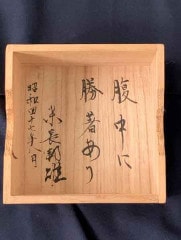 腹中に
勝着あり
米長邦雄
昭和四十七年八月